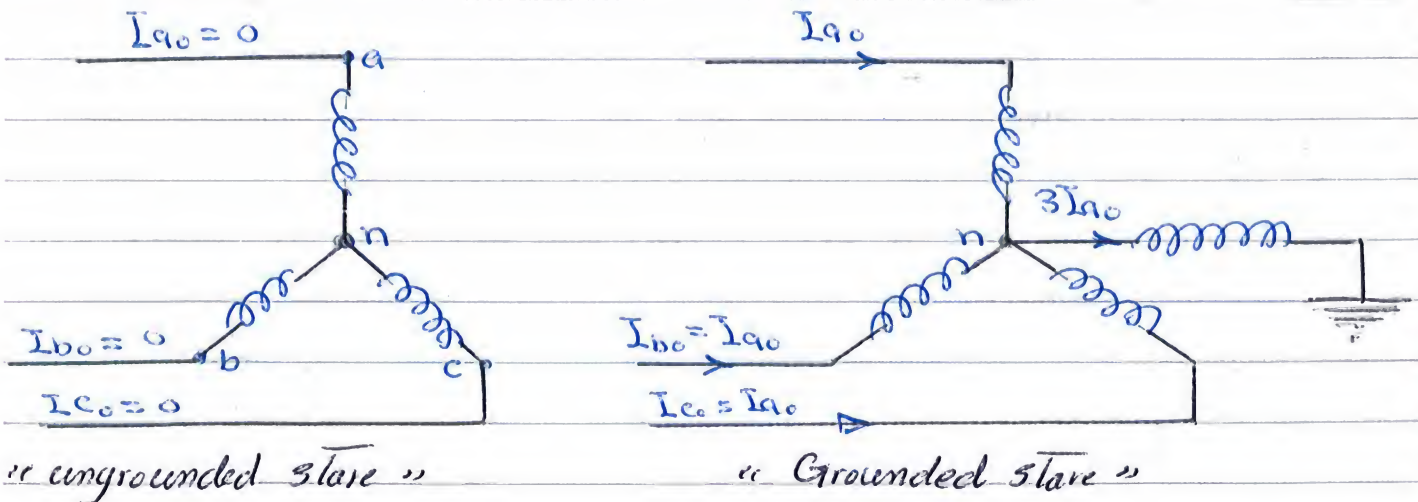 Ia₀ = 0
a
n
Ib₀ = 0
b
c
Ic₀ = 0
"ungrounded stare"
Ia₀
3Ia₀
n
Ib₀ = Ia₀
Ic₀ = Ia₀
"Grounded stare"